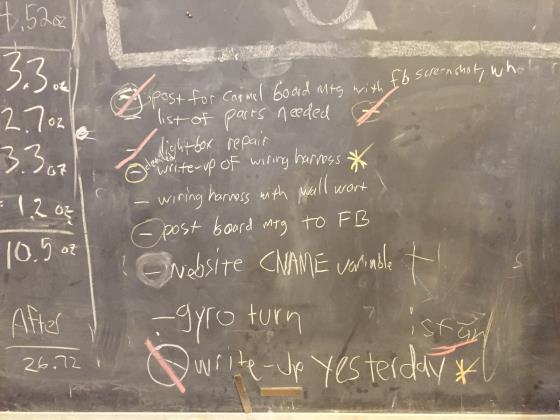 1.52oz
3.3oz
2.7oz
3.3oz
1.2oz
10.5oz
After
26.72
- post for carmel board mtg with fb screenshot, who
list of parts needed -
- lightbox repair
detailed
- write-up of wiring harness *
- wiring harness with wall wart
- post board mtg to FB
- website CNAME variable
- gyro turn
- write-up yesterday *